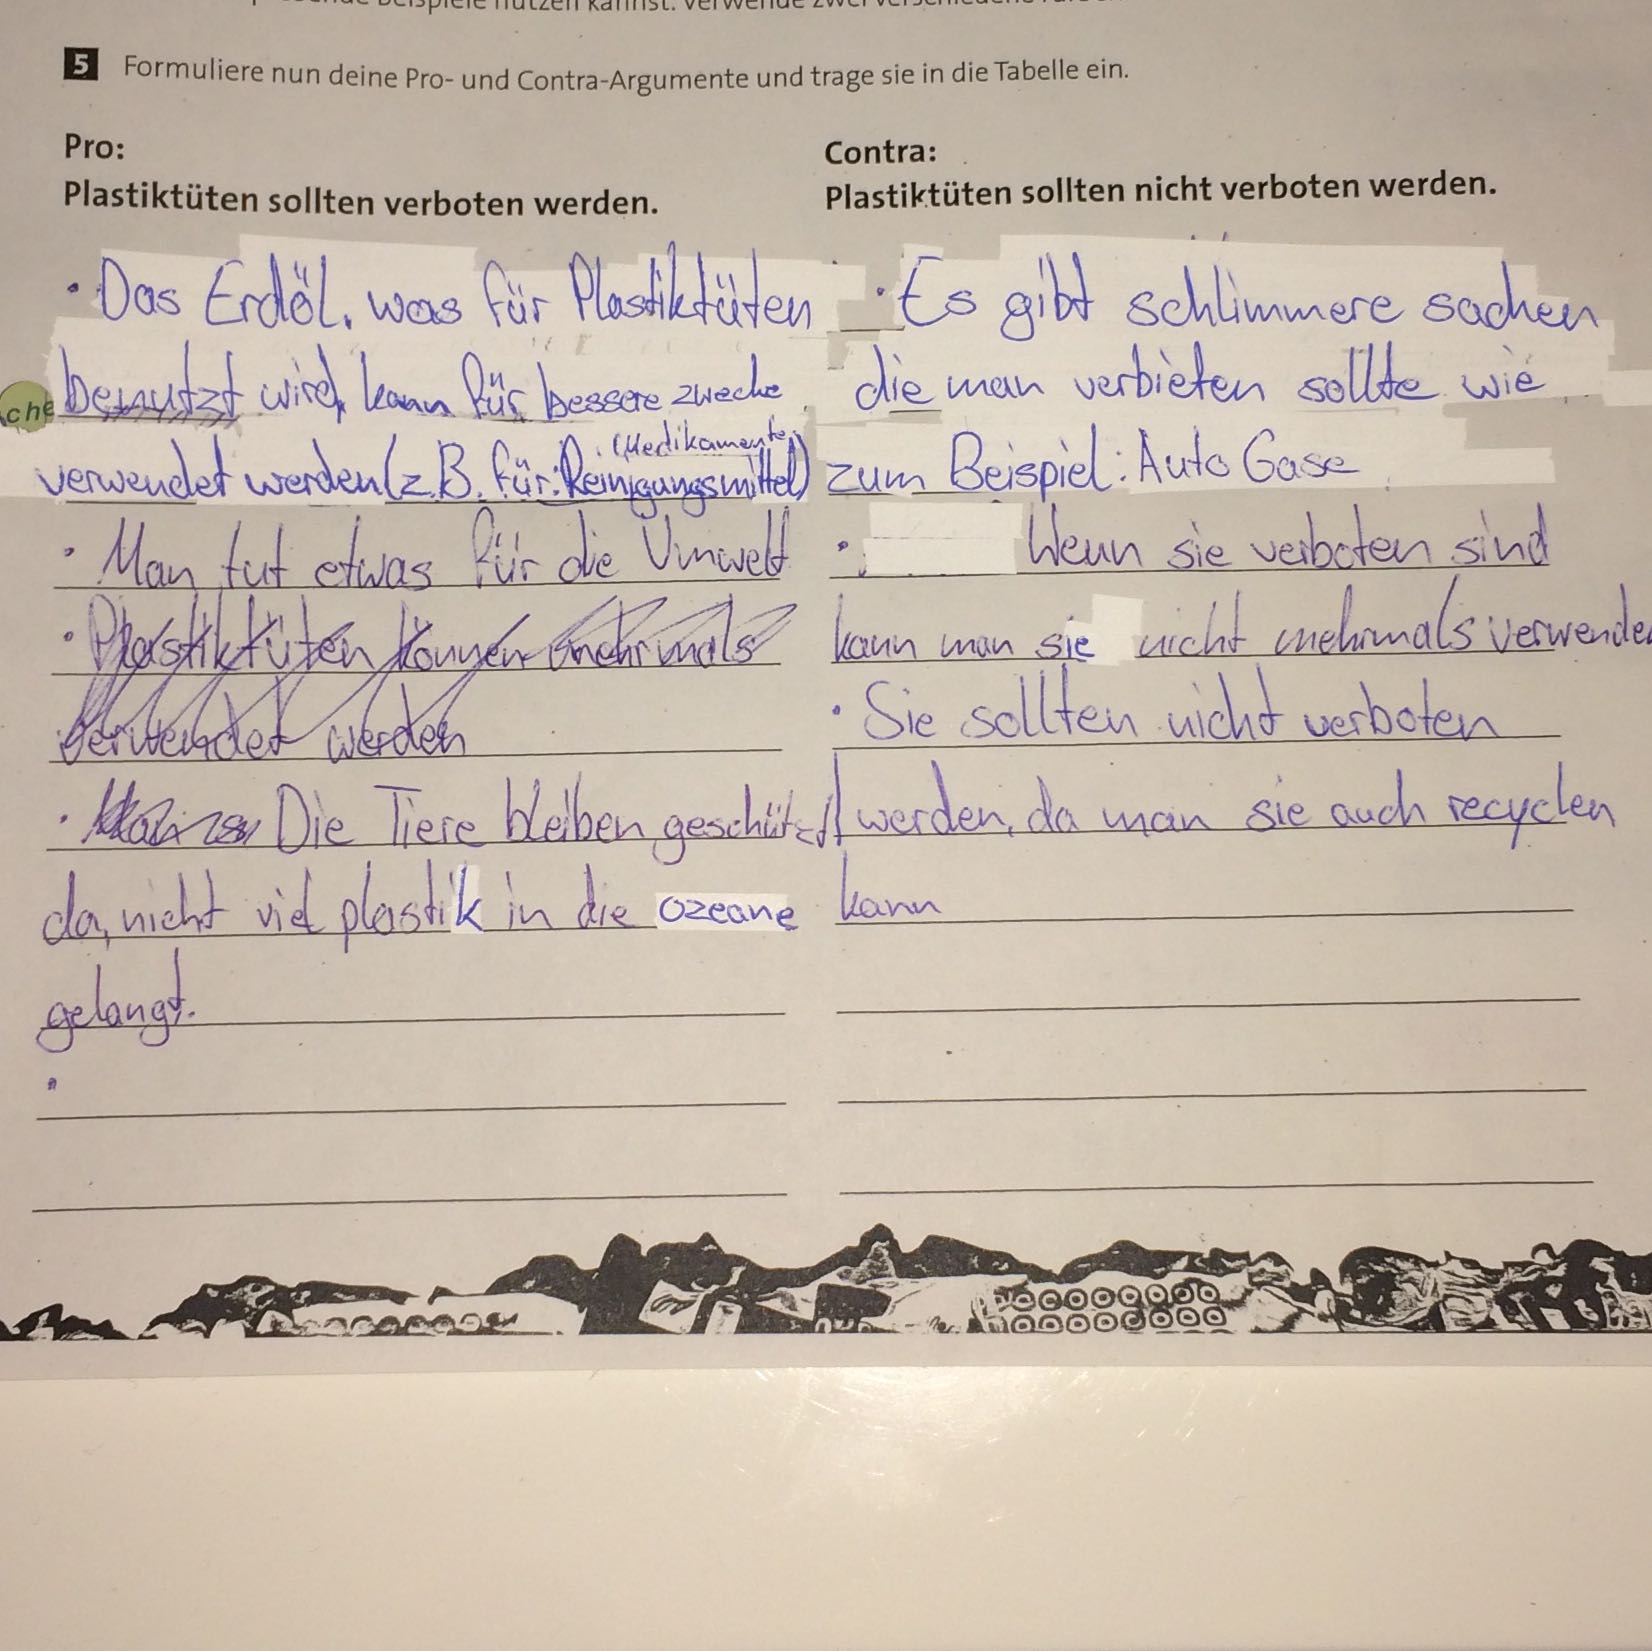 5 Formuliere nun deine Pro- und Contra-Argumente und trage sie in die Tabelle ein.
Pro:
Plastiktüten sollten verboten werden.
• Das Erdöl, was für Plastiktüten
benutzt wird, kann für bessere zwecke
(Medikamente,
verwendet werden (z.B. für: Reinigungsmittel)
• Man tut etwas für die Umwelt
• Plastiktüten können mehrmals
verwendet werden
• Die Tiere bleiben geschützt
da, nicht viel plastik in die ozeane
gelangt.
•
che
Contra:
Plastiktüten sollten nicht verboten werden.
• Es gibt schlimmere sachen
die man verbieten sollte wie
zum Beispiel: Auto Gase
• Wenn sie verboten sind
kann man sie nicht mehrmals verwenden
• Sie sollten nicht verboten
werden, da man sie auch recyclen
kann